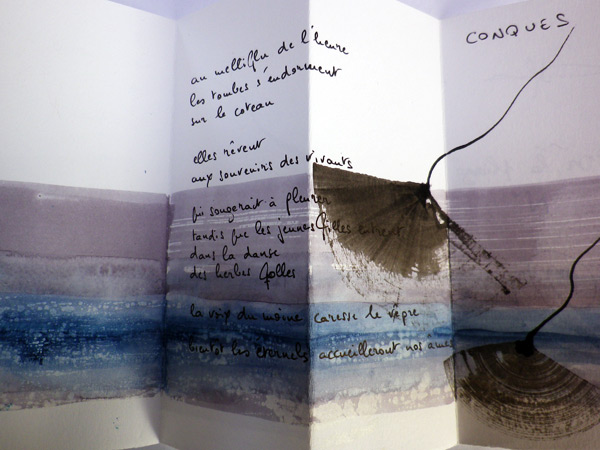 CONQUES
au melliflu de l'heure
les tombes s'endorment
sur le coteau
elles rêvent
aux souvenirs des vivants
qui songerait à pleurer
tandis que les jeunes filles entrent
dans la danse
des herbes folles
la voix du moine caresse de vêpre
bientôt les éternels accueilleront nos âmes